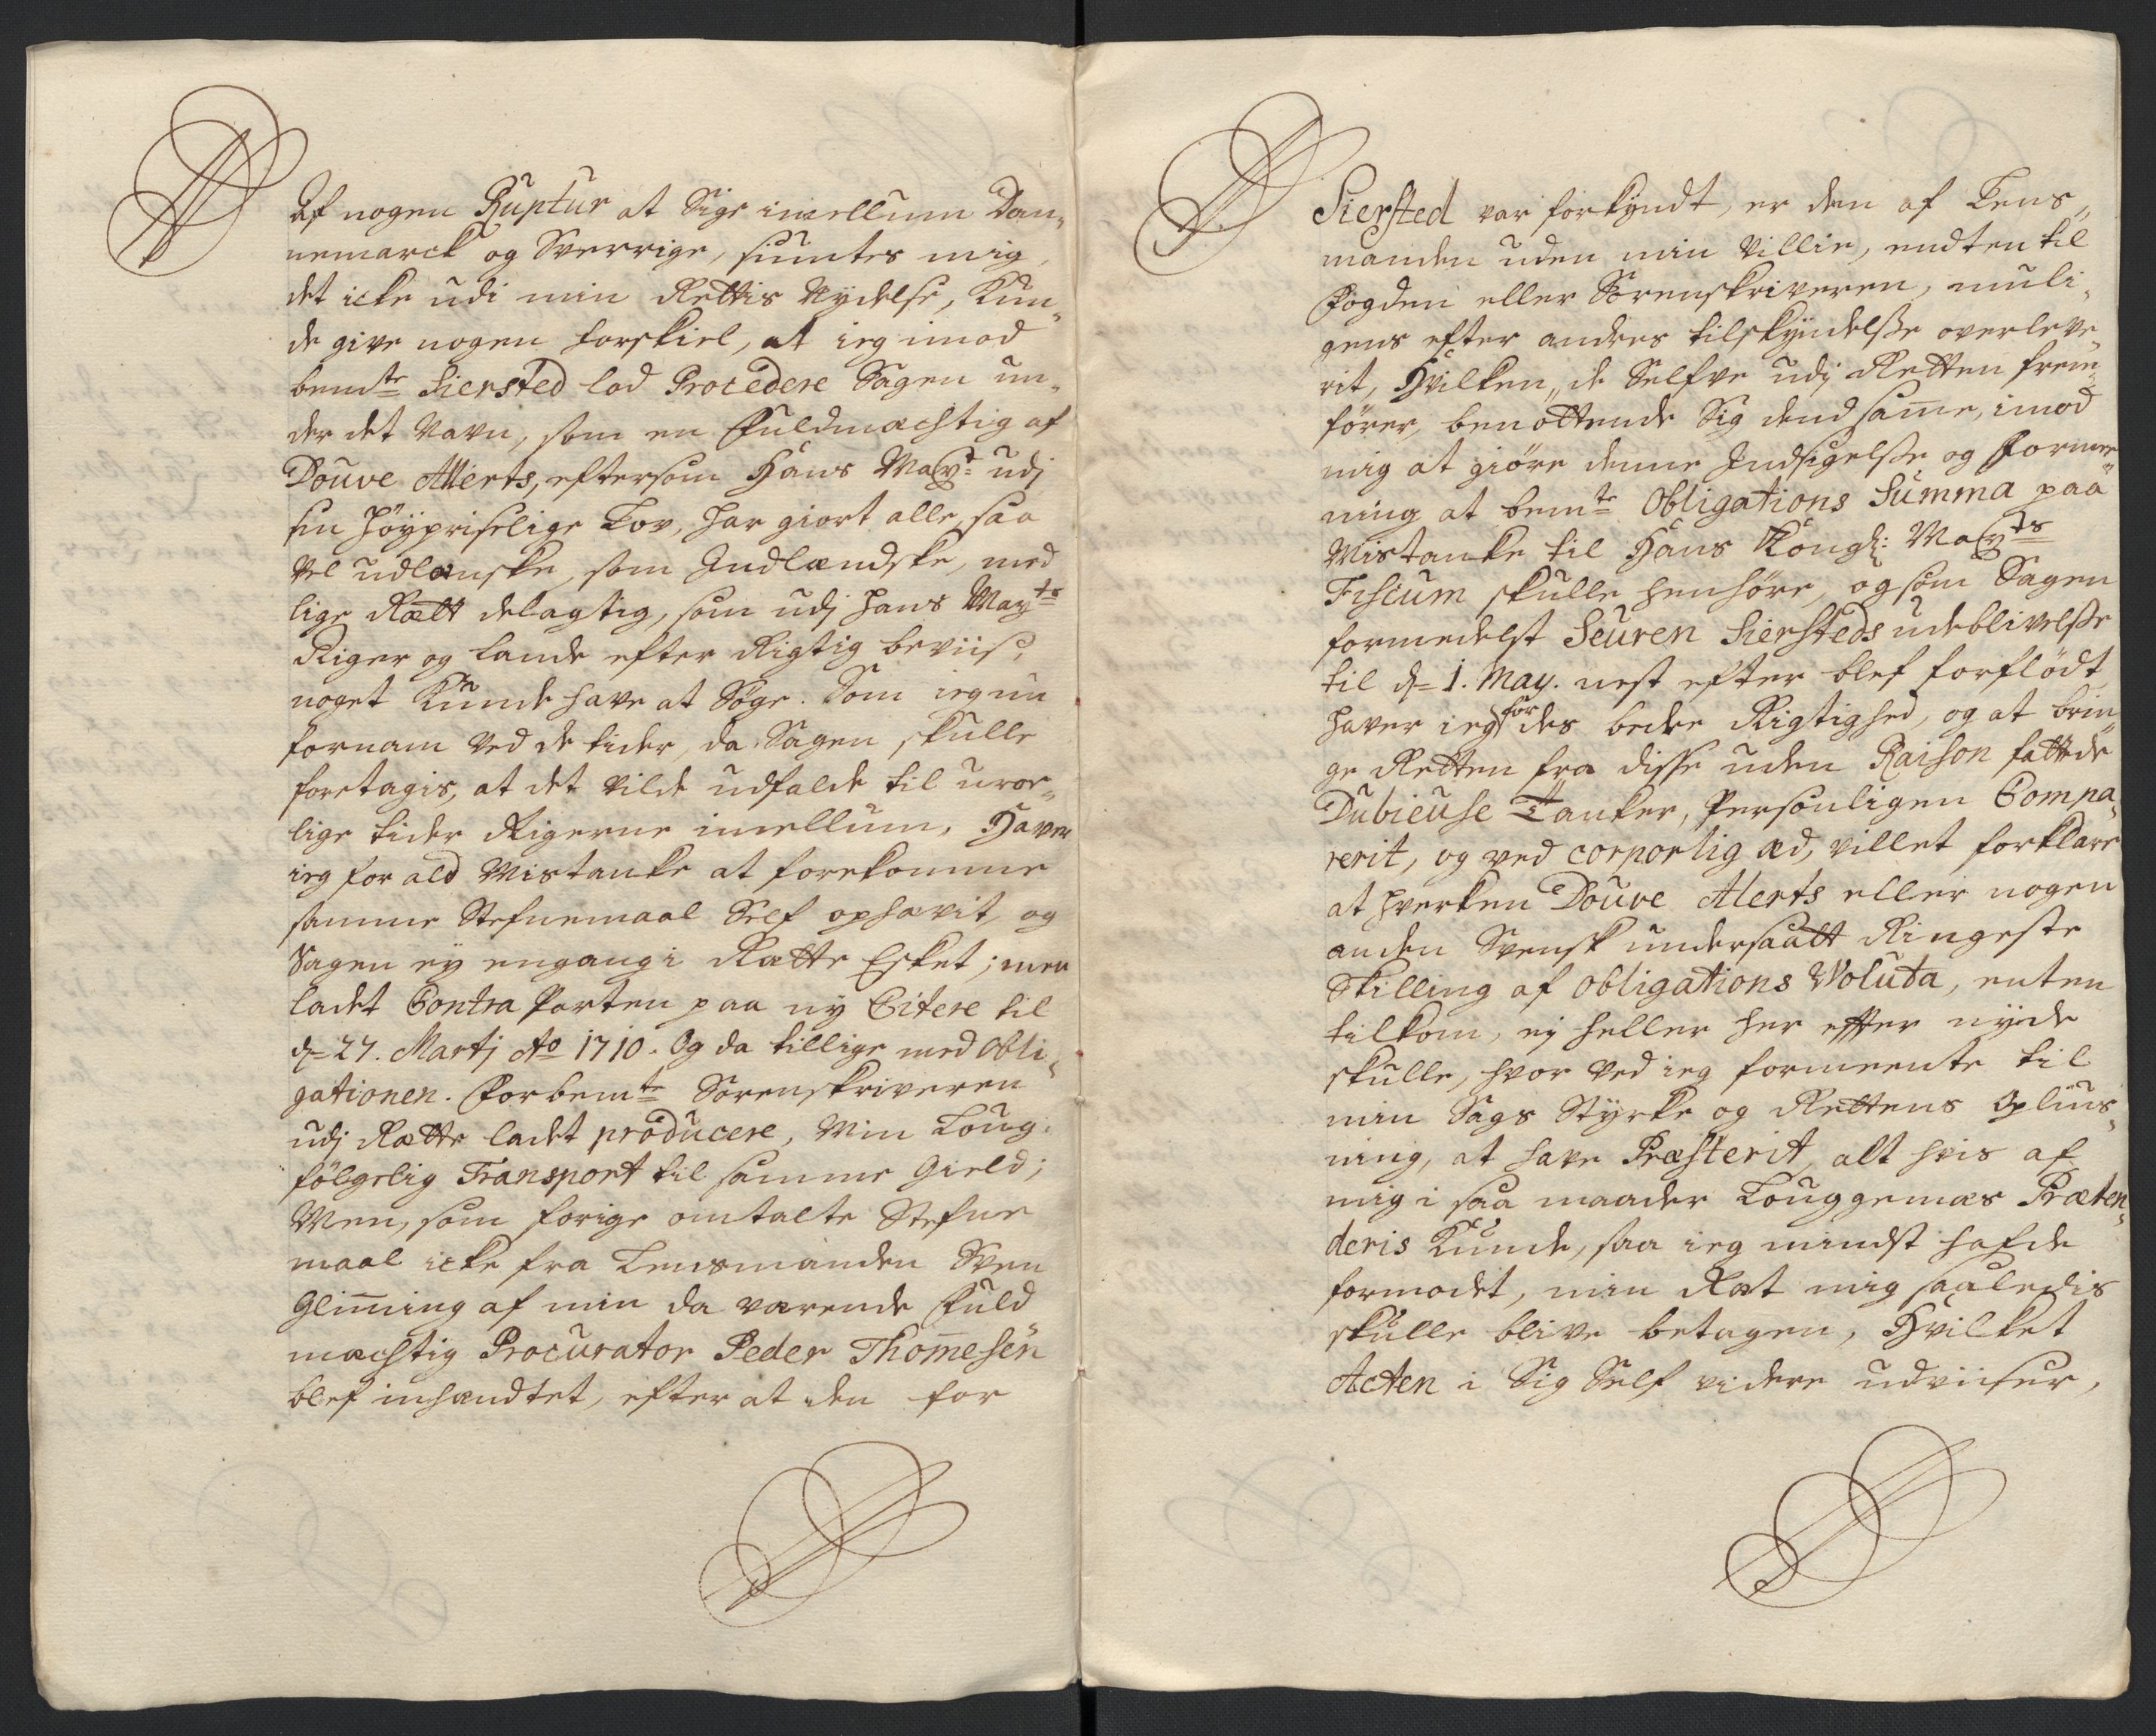 Af nogen Ruptur at Sige imellum Dan„
nemarck og Sverrige, siuntes mig,
det icke udi min Rettis Nydelse, Kun„
de give nogen forskiel, at ieg imod
bemte Siersted lod Procedere Sagen un„
der det Navn, som en Fuldmæchtig af
Douve Allerts, eftersom Hans Mayt udj
sin höypriselige Lov, har giort alle, saa
vel udlænske, som Indlændske, med
lige Rætt delagtig, som udj hans Mayts
Riger og Lande efter Rigtig beviis,
noget Kunde have at Søge. Som ieg nu
fornam ved de tider, da Sagen skulle
foretagis, at det vilde udfalde til uroe„
lige tider Rigerne imellum, Haver
ieg for ald Mistanke at forekomme
samme Stefnemaal Self ophævit, og
Sagen ey engang i Rætte Esket; men
ladet Contra Parten paa ny Citere til
d= 27. Martj Ao 1710. Og da tillige med Obli„
gationen. Forbemte Sorenskriveren
udj Rætte ladet producere, Min Loug„
følgelig Transport til samme Gield;
Men, som forige omtalte Stefne
maal icke fra Lensmanden Sven
Glim̅ing af min da værende Fuld„
mæchtig Procurator Peder Thom̅esen
blef inhændtet, efter at den for
Siersted var forkyndt, er den af Lens„
manden uden min Villie, endten til
Fogden eller Sorenskriveren, muli„
gens efter andres tilskyndelsse overleve„
rit, Hvilken, de Selfve udj Retten frem„
förer, benöttende Sig dend sam̅e, imod
mig at giöre denne Indsigelsse og Formee„
ning at bemte Obligations Summa paa
Mistanke til Hans Kongl: Mayts
Fiscum skulle henhöre, og som Sagen
formedelst Seuren Siersteds udeblivelsse
til d= 1. May. nest efter blef forflödt,
haver ieg for des bedre Rigtighed, og at brin„
ge Retten fra disse uden Raison fattede
Dubieuse Tanker, Personligen Compa„
rerit, og ved corporlig æd, villet forklare
at hverken Douve Alerts eller nogen
anden Svensk undersaatt Ringeste
Skilling af Obligations Voluta, enten
tilkom, ej heller her effter nyde
skulle, hvor ved ieg formeente til
min Sags Styrke og Rettens Oplius„
ning, at have Præsterit, alt hvis af
mig i saa maader Louggemæs Præten„
deris Kunde, saa ieg mindst hafde
formodet, min Ræt mig saaledis
skulle blive betagen, Hvilket
Acten i Sig Self videre udviiser,